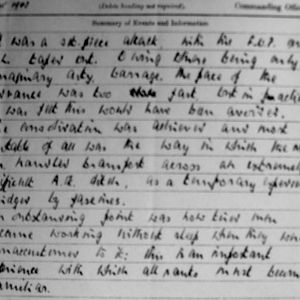 1943
(Delete heading not required).
Commanding Offic
Summary of Events and Information
was a set-piece attack, with the F.U.P. an
L tapes out. Owing to there being only
imaginary arty. barrage, the pace of the
advance was two fast, but in practice
was felt this would have been averted.
consolidation was achieved and most
notable of all was the way in which the m
handled transport across an extremely
difficult A.T. ditch, as a temporary
bridges by fascines.
outstanding point was how tired men
became working without sleep when they were
unaccustomed to it; this is an important
experience with which all ranks must become
familiar.